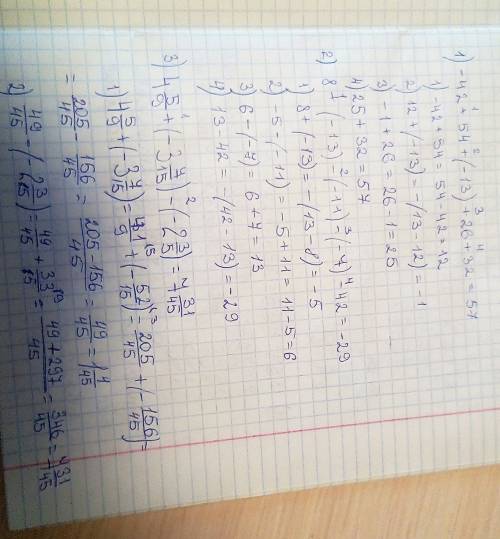 1) -42 + 54 + (-13) + 26 + 32 = 57
1) -42 + 54 = 54 - 42 = 12
2) 12 + (-13) = -(13 - 12) = -1
3) -1 + 26 = 26 - 1 = 25
4) 25 + 32 = 57
2) 8 + (-13) - (-11) - (-7) - 42 = -29
1) 8 + (-13) = -(13 - 8) = -5
2) -5 - (-11) = -5 + 11 = 11 - 5 = 6
3) 6 - (-7) = 6 + 7 = 13
4) 13 - 42 = -(42 - 13) = -29
3) 4 5/9 + (-3 7/15) - (-6 3/5) = 7 31/45
1) 4 5/9 + (-3 7/15) = 41/9 + (-52/15) = 205/45 + (-156/45) =
= 205/45 - 156/45 = 205-156/45 = 49/45 = 1 4/45
2) 49/45 - (-6 3/5) = 49/45 + 33/5 = 49+297/45 = 346/45 = 7 31/45